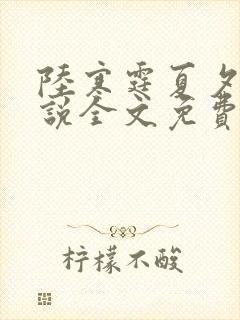 陸寒霆夏夕
說全文免費
柠檬不酸